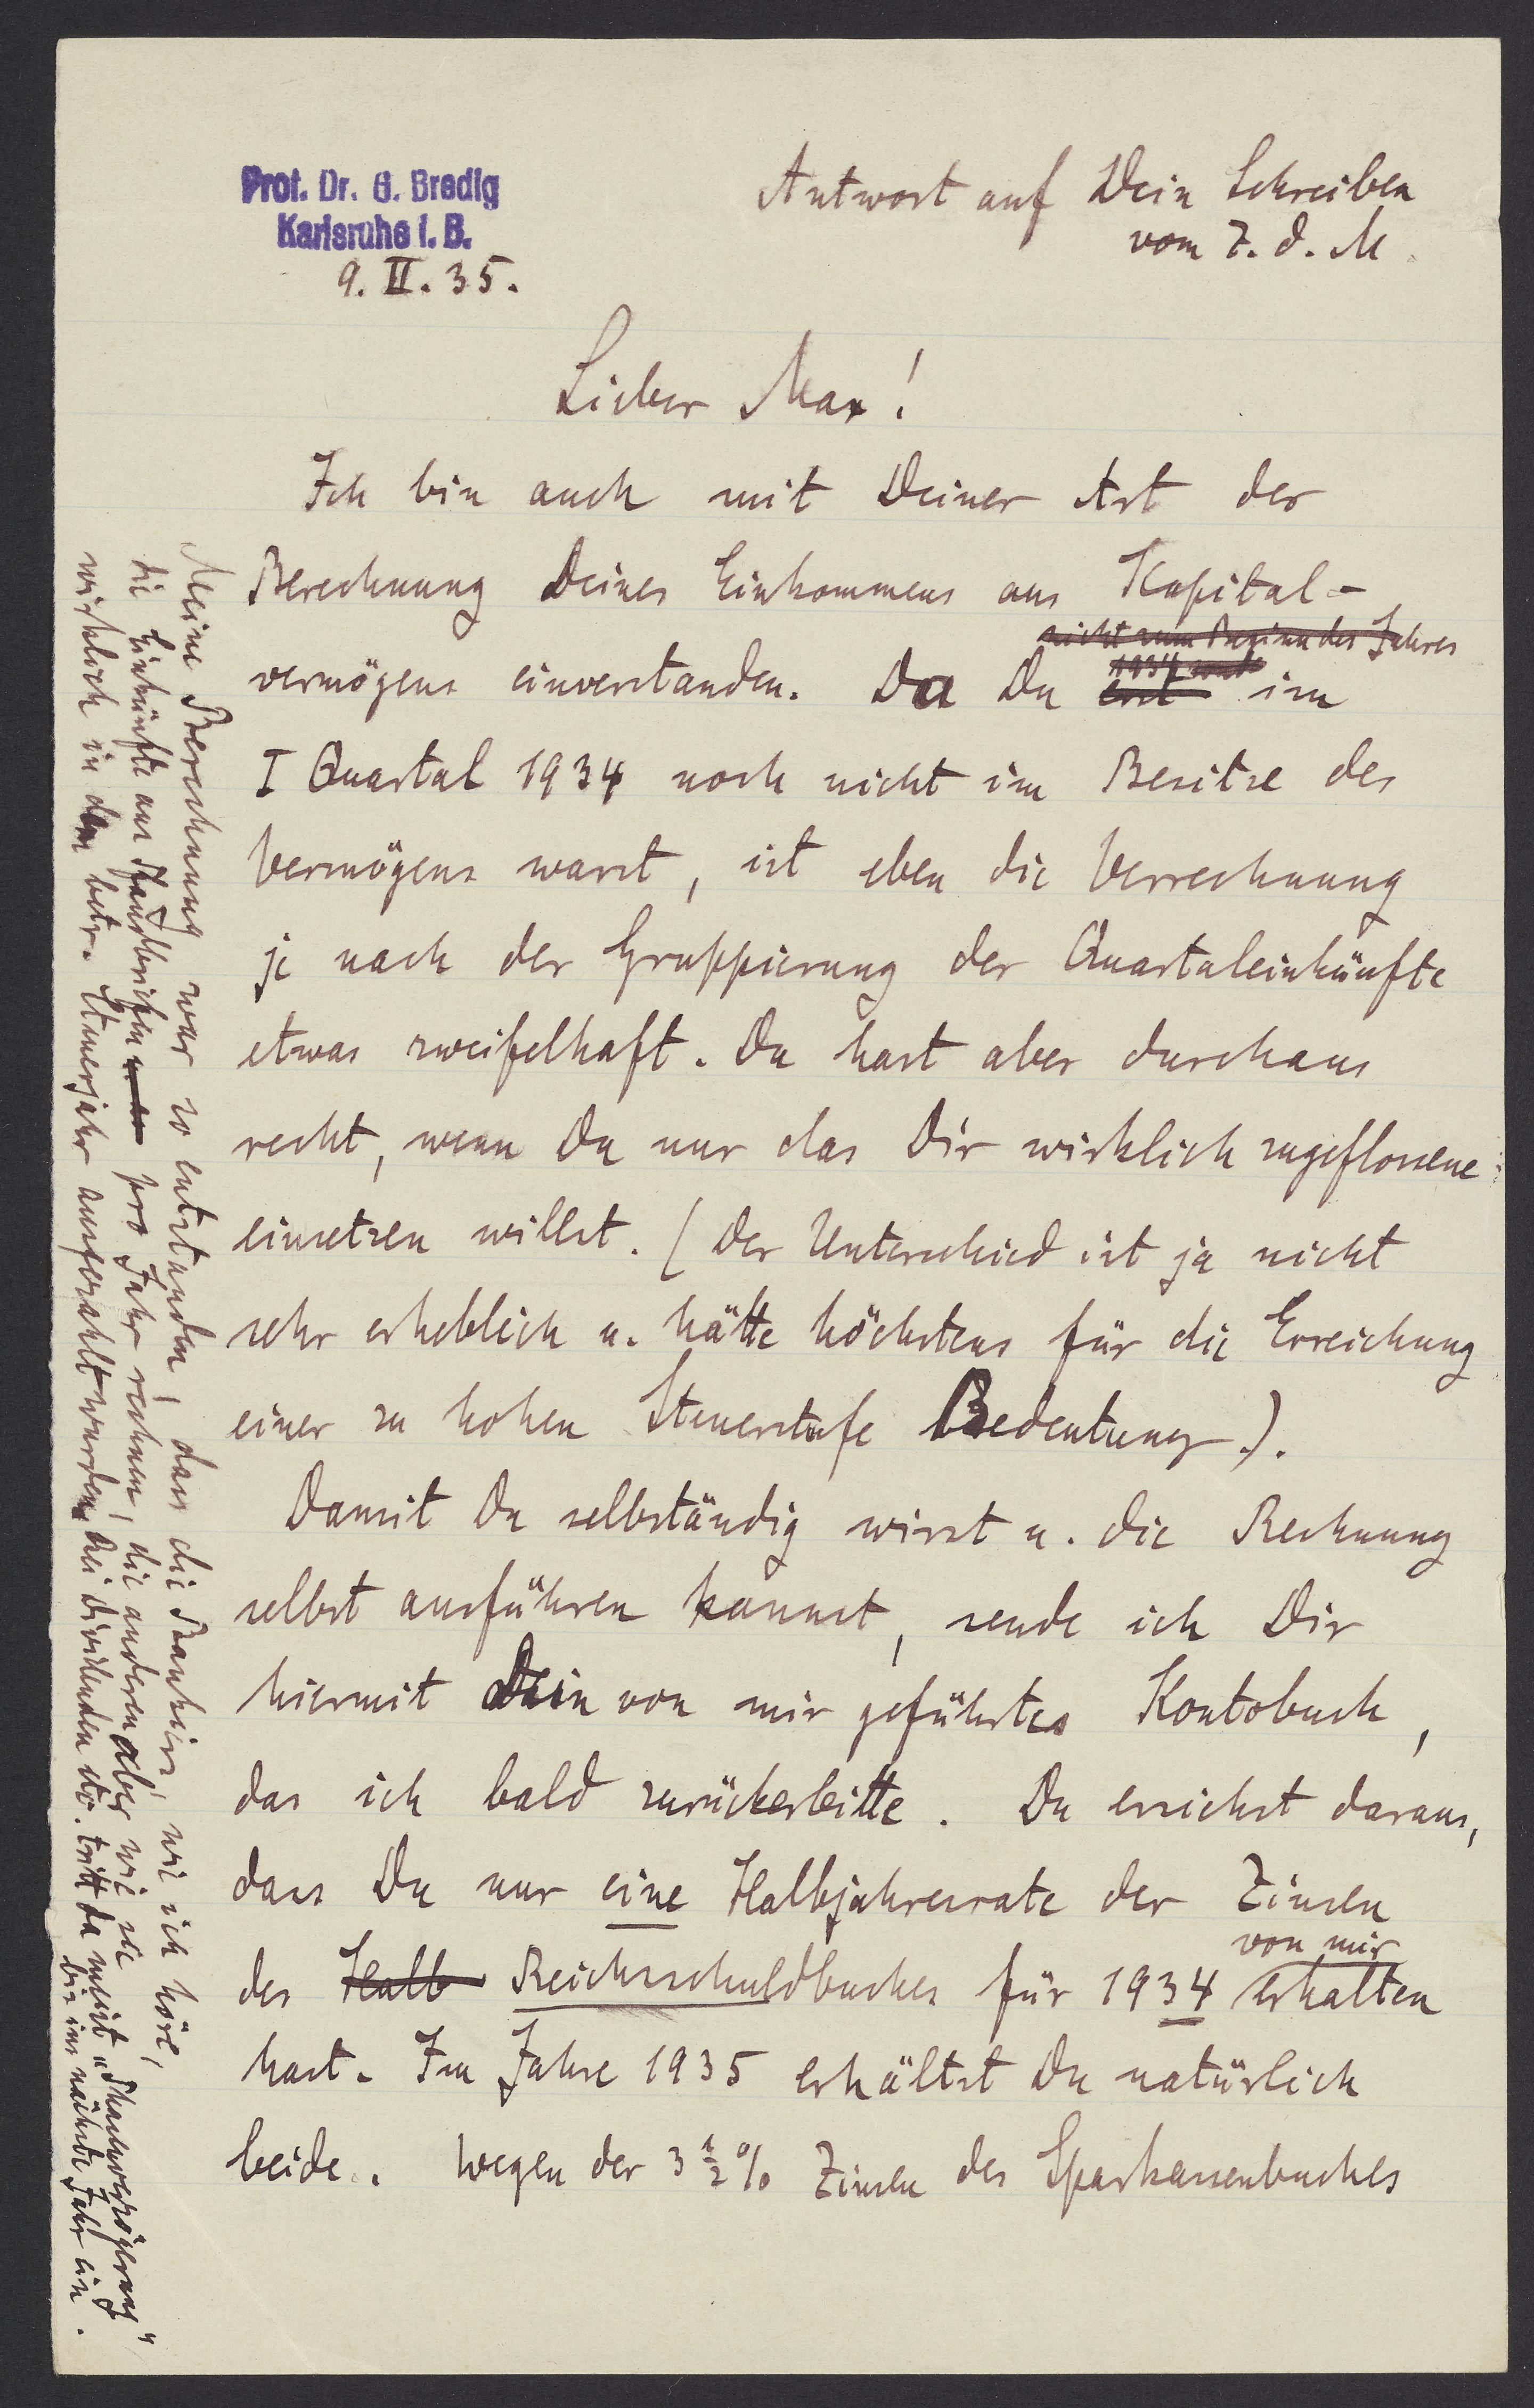 Prof. Dr. G. Bredig
Karlsruhe i. B.
9. II. 35.
Antwort auf Dein Schreiben
vom 7. d. M.
Lieber Max!
Ich bin auch mit Deiner Art der
Berechnung Deines Einkommens aus Kapital-
nicht zum Beginn des Jahres
1934
vermögens einverstanden. Da Du erst im
I Quartal 1934 noch nicht im Besitze des
Vermögens warst, ist eben die Verrechnung
je nach der Gruppierung der Quartaleinkünfte
etwas zweifelhaft. Du hast aber durchaus
recht, wenn Du nur das Dir wirklich zugeflossene
einsetzen willst. (Der Unterschied ist ja nicht
sehr erheblich u. hätte höchstens für die Erreichung
einer zu hohen Steuerstufe Bedeutung).
Damit Du selbständig wirst u. die Rechnung
selbst ausführen kannst, sende ich Dir
hiermit Dein von mir geführtes Kontobuch,
das ich bald zurückerbitte. Du ersiehst daraus,
dass Du nur eine Halbjahresrate der Zinsen
von mir
des Halb Reichsschuldbuches für 1934 erhalten
hast. Im Jahre 1935 erhältst Du natürlich
beide. Wegen der 3 1/2 % Zinsen des Sparkassenbuches
Meine Berechnung war so entstanden, dass die Bankiers, wie ich höre,
die Einkünfte aus Pfandbriefen pro Jahr rechnen, die anderen aber wie sie
wirklich in dem betr. Steuerjahr ausgezahlt wurden. Bei Dividenden etc. tritt da meist "Phasenverzögerung"
bis ins nächste Jahr ein.